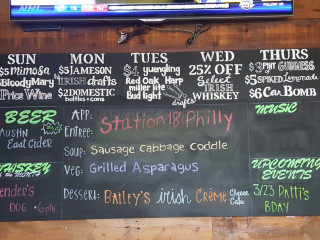 SUN
$5 mimosa
$5 Bloody Mary
Price Wine
MON
$5 JAMESON
IRISH drafts
$2 DOMESTIC
bottles + cans
TUES
$4 yuengling
Red Oak Harp
miller lite
Bud light
drafts
WED
25% OFF
Select
IRISH
WHISKEY
THURS
$3 PINT GUINNESS
$5 SPIKED LEMONADE
$6 Car BOMB
BEER
AUSTIN
East Cider
WHISKEY
ender's
DOG
APP:
Entree: Station 18 Philly
Soup: Sausage Cabbage Coddle
Veg: Grilled Asparagus
Dessert: Bailey's irish Crème Cheese Cake
MUSIC
UPCOMING
EVENTS
3/23 Patti's
BDAY